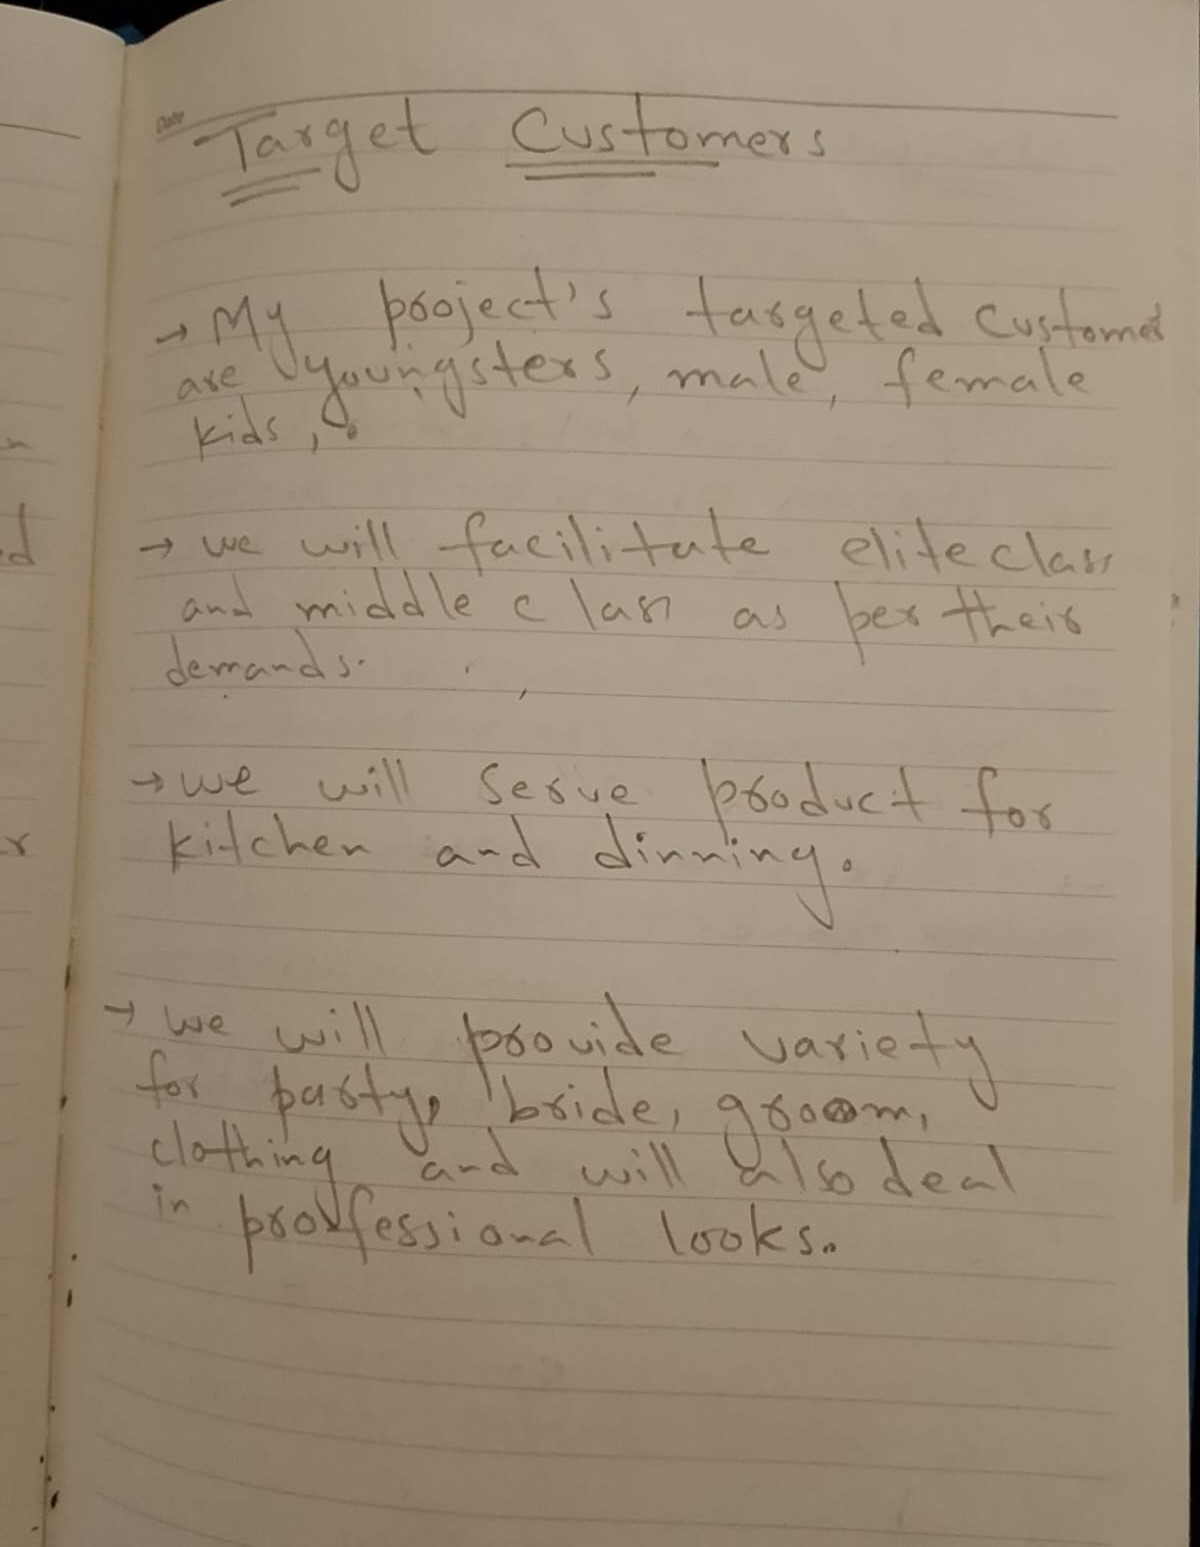 Date
Target Customers
→ My project's targeted customer
are youngsters, male, female
kids,
→ we will facilitate elite class
and middle class as per their
demands.
→ we will serve product for
kitchen and dinning.
→ we will provide variety
for party, bride, groom,
clothing and will also deal
in professional looks.
n
ed
r